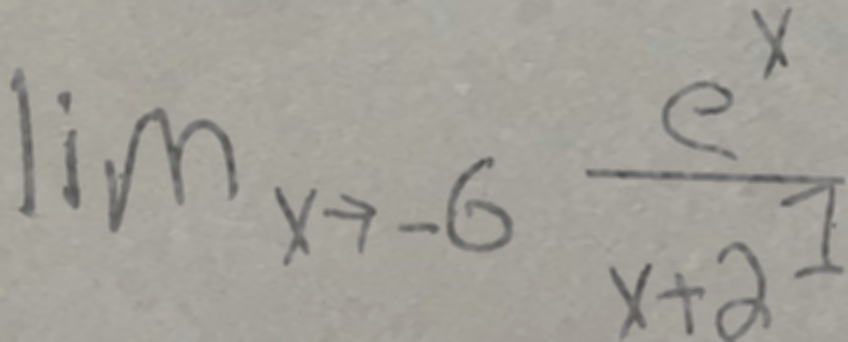 lim x→-6 e^x / x+2^1